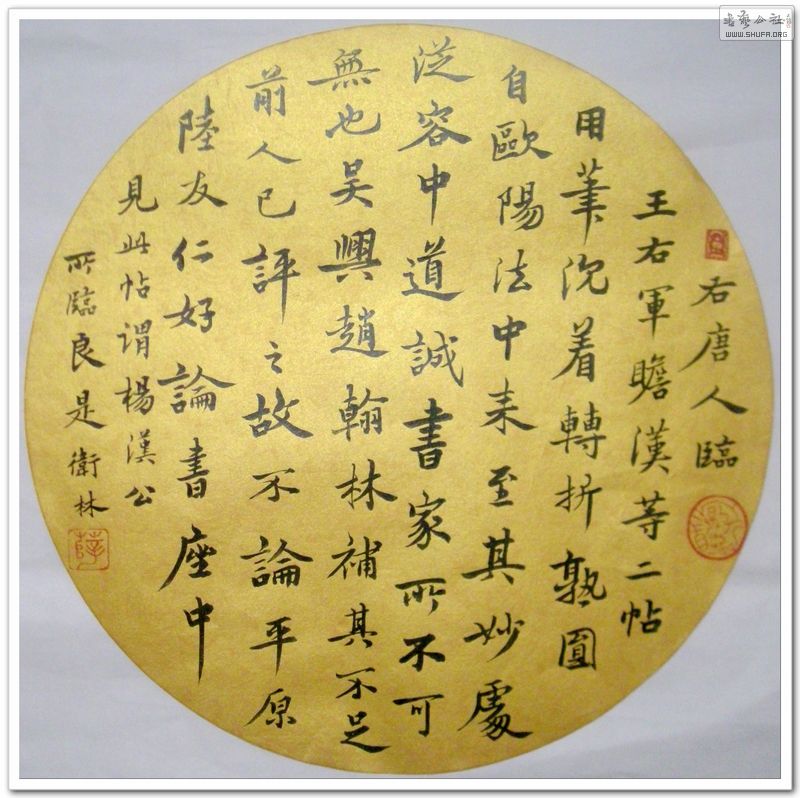 右唐人臨
王右軍瞻漢等二帖
用筆沉着轉折熟圓
自歐陽法中来至其妙處
從容中道誠書家所不可
無也吴興趙翰林補其不足
前人已評之故不論平原
陸友仁好論書座中
見此帖謂楊漢公
所臨良是衛林
WWW.SHUFA.ORG